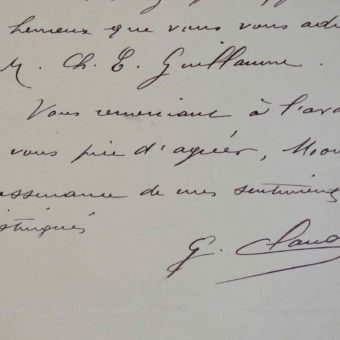 heureux que vous vous adr
M. Ch. E. Guillaume.
Vous remerciant à l'ava
vous prie d'agréer, Mon
assurance de mes sentiments
stingués
G. Claud